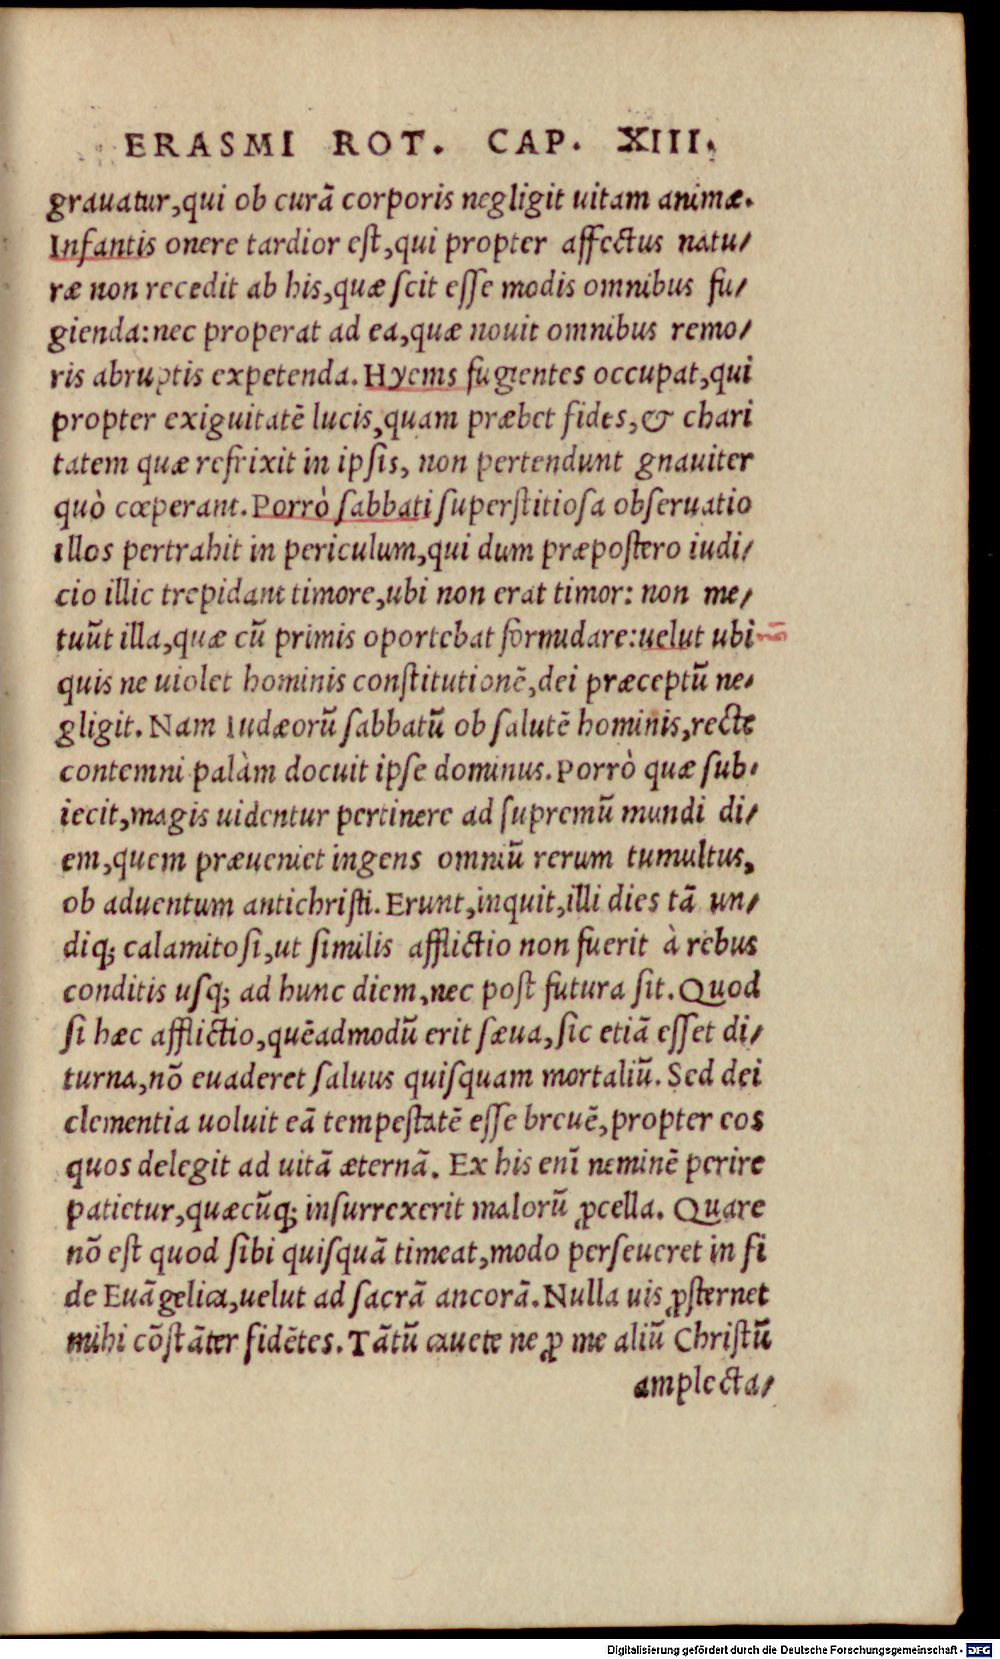 ERASMI ROT. CAP. XIII.
grauatur,qui ob curā corporis negligit uitam animæ.
Infantis onere tardior est,qui propter affectus natu/
ræ non recedit ab his,quæ scit esse modis omnibus fu/
gienda:nec properat ad ea,quæ nouit omnibus remo/
ris abruptis expetenda.Hyems fugientes occupat,qui
propter exiguitatē lucis,quam præbet fides,& chari
tatem quæ refrixit in ipsis, non pertendunt gnauiter
quò cœperant.Porrò sabbati superstitiosa obseruatio
illos pertrahit in periculum,qui dum præpostero iudi/
cio illic trepidant timore,ubi non erat timor: non me/
tuūt illa,quæ cū primis oportebat formidare:uelut ubi
quis ne uiolet hominis constitutionē,dei præceptū ne/
gligit. Nam Iudæorū sabbatū ob salutē hominis,recte
contemni palàm docuit ipse dominus.Porrò quæ sub/
iecit,magis uidentur pertinere ad supremū mundi di/
em,quem præueniet ingens omniū rerum tumultus,
ob aduentum antichristi.Erunt,inquit,illi dies tā un/
diq; calamitosi,ut similis afflictio non fuerit à rebus
conditis usq; ad hunc diem,nec post futura sit.Quod
si hæc afflictio,quēadmodū erit sæua,sic etiā esset di/
turna,nō euaderet saluus quisquam mortaliū. Sed dei
clementia uoluit eā tempestatē esse breuē,propter eos
quos delegit ad uitā æternā. Ex his enī neminē perire
patietur,quæcūq; insurrexerit malorū ꝓcella. Quare
nō est quod sibi quisquā timeat,modo perseueret in fi
de Euāgelica,uelut ad sacrā ancorā.Nulla uis ꝓsternet
mihi cōstāter fidētes.Tātū cauete ne ꝓ me aliū Christū
amplecta/
Digitalisierung gefördert durch die Deutsche Forschungsgemeinschaft - DFG